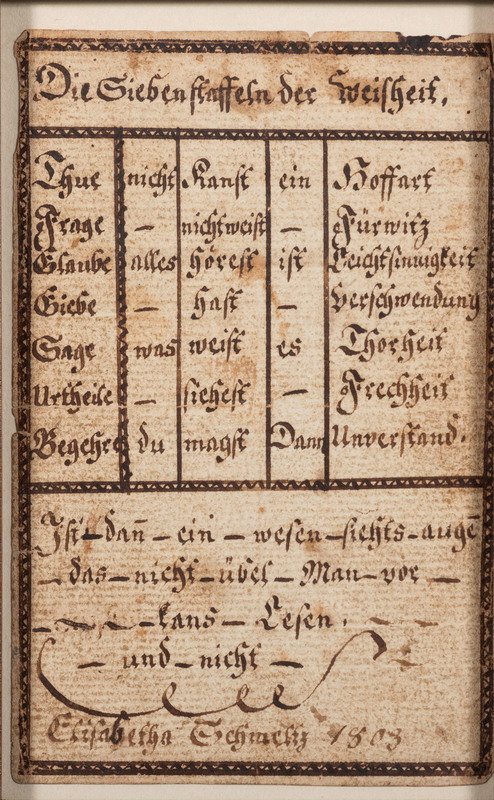 Die Sieben staffeln der Weisheit.
Thue nicht Kanst ein Hoffart
Frage — nicht weist — Fürwitz
Glaube alles hörest ist Leichtsinnigkeit
Giebe — hast — Verschwendung
Sage was weist es Thorheit
Urtheile — siehest — Frechheit
Begehre du magst Dann Unverstand.
Ist — dañ — ein — wesen — siehts — auge
— das — nicht — übel — Man — vor —
— kans — Lesen.
— und — nicht —
Elisabetha Schmeltz 1803